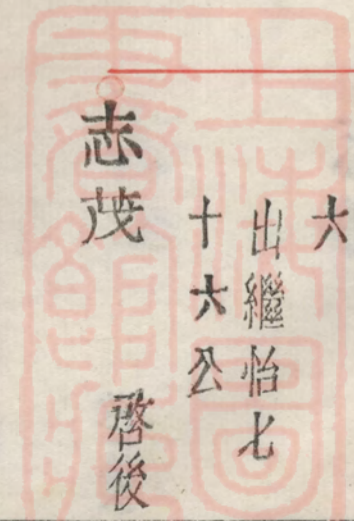 六
出繼怡七
十六公
志茂
啓後